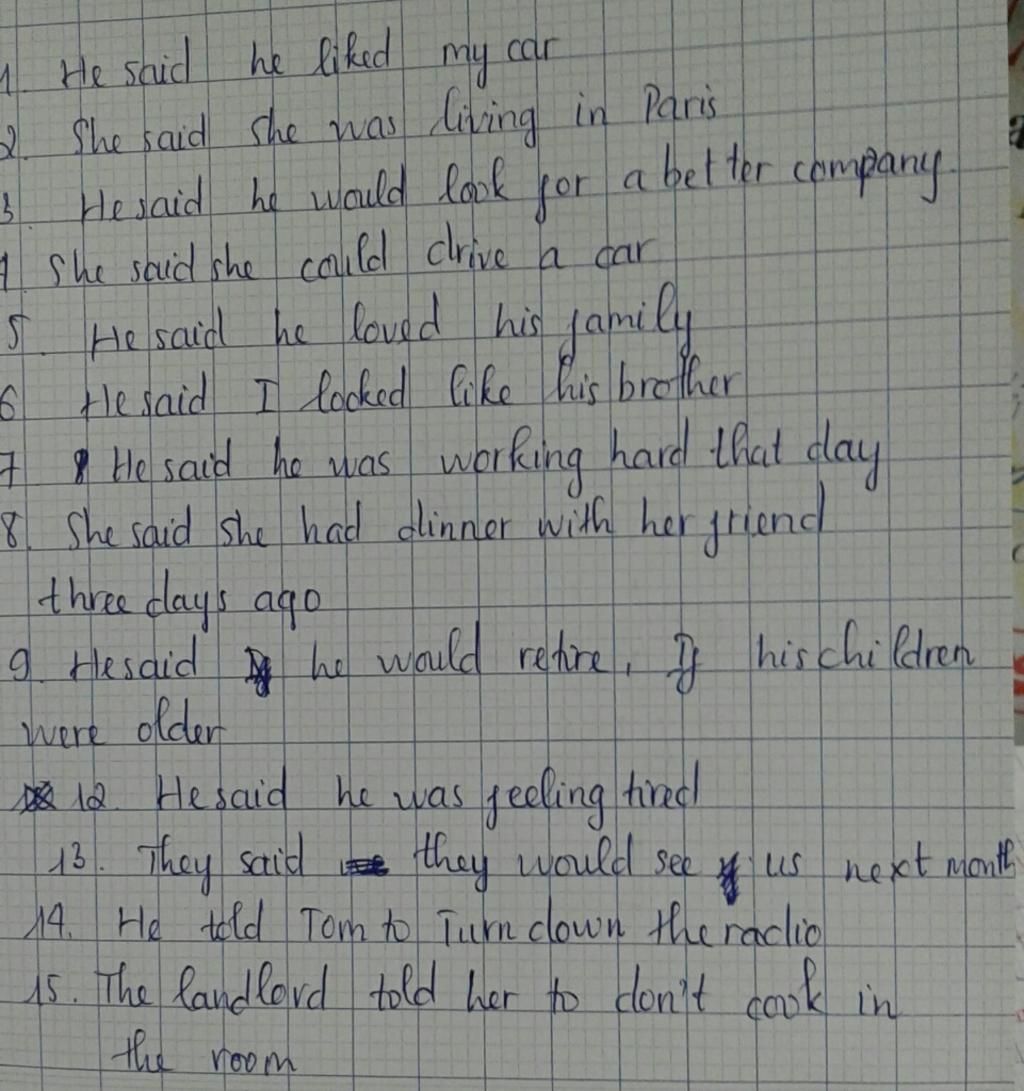 1. He said he liked my car
2. She said she was living in Paris
3. He said he would look for a better company.
4. She said she could drive a car
5. He said he loved his family
6. He said I looked like his brother
7. He said he was working hard that day
8. She said she had dinner with her friend
three days ago
9. He said he would retire, If his children
were older
12. He said he was feeling tired
13. They said they would see us next month
14. He told Tom to Turn down the radio
15. The landlord told her to don't cook in
the room